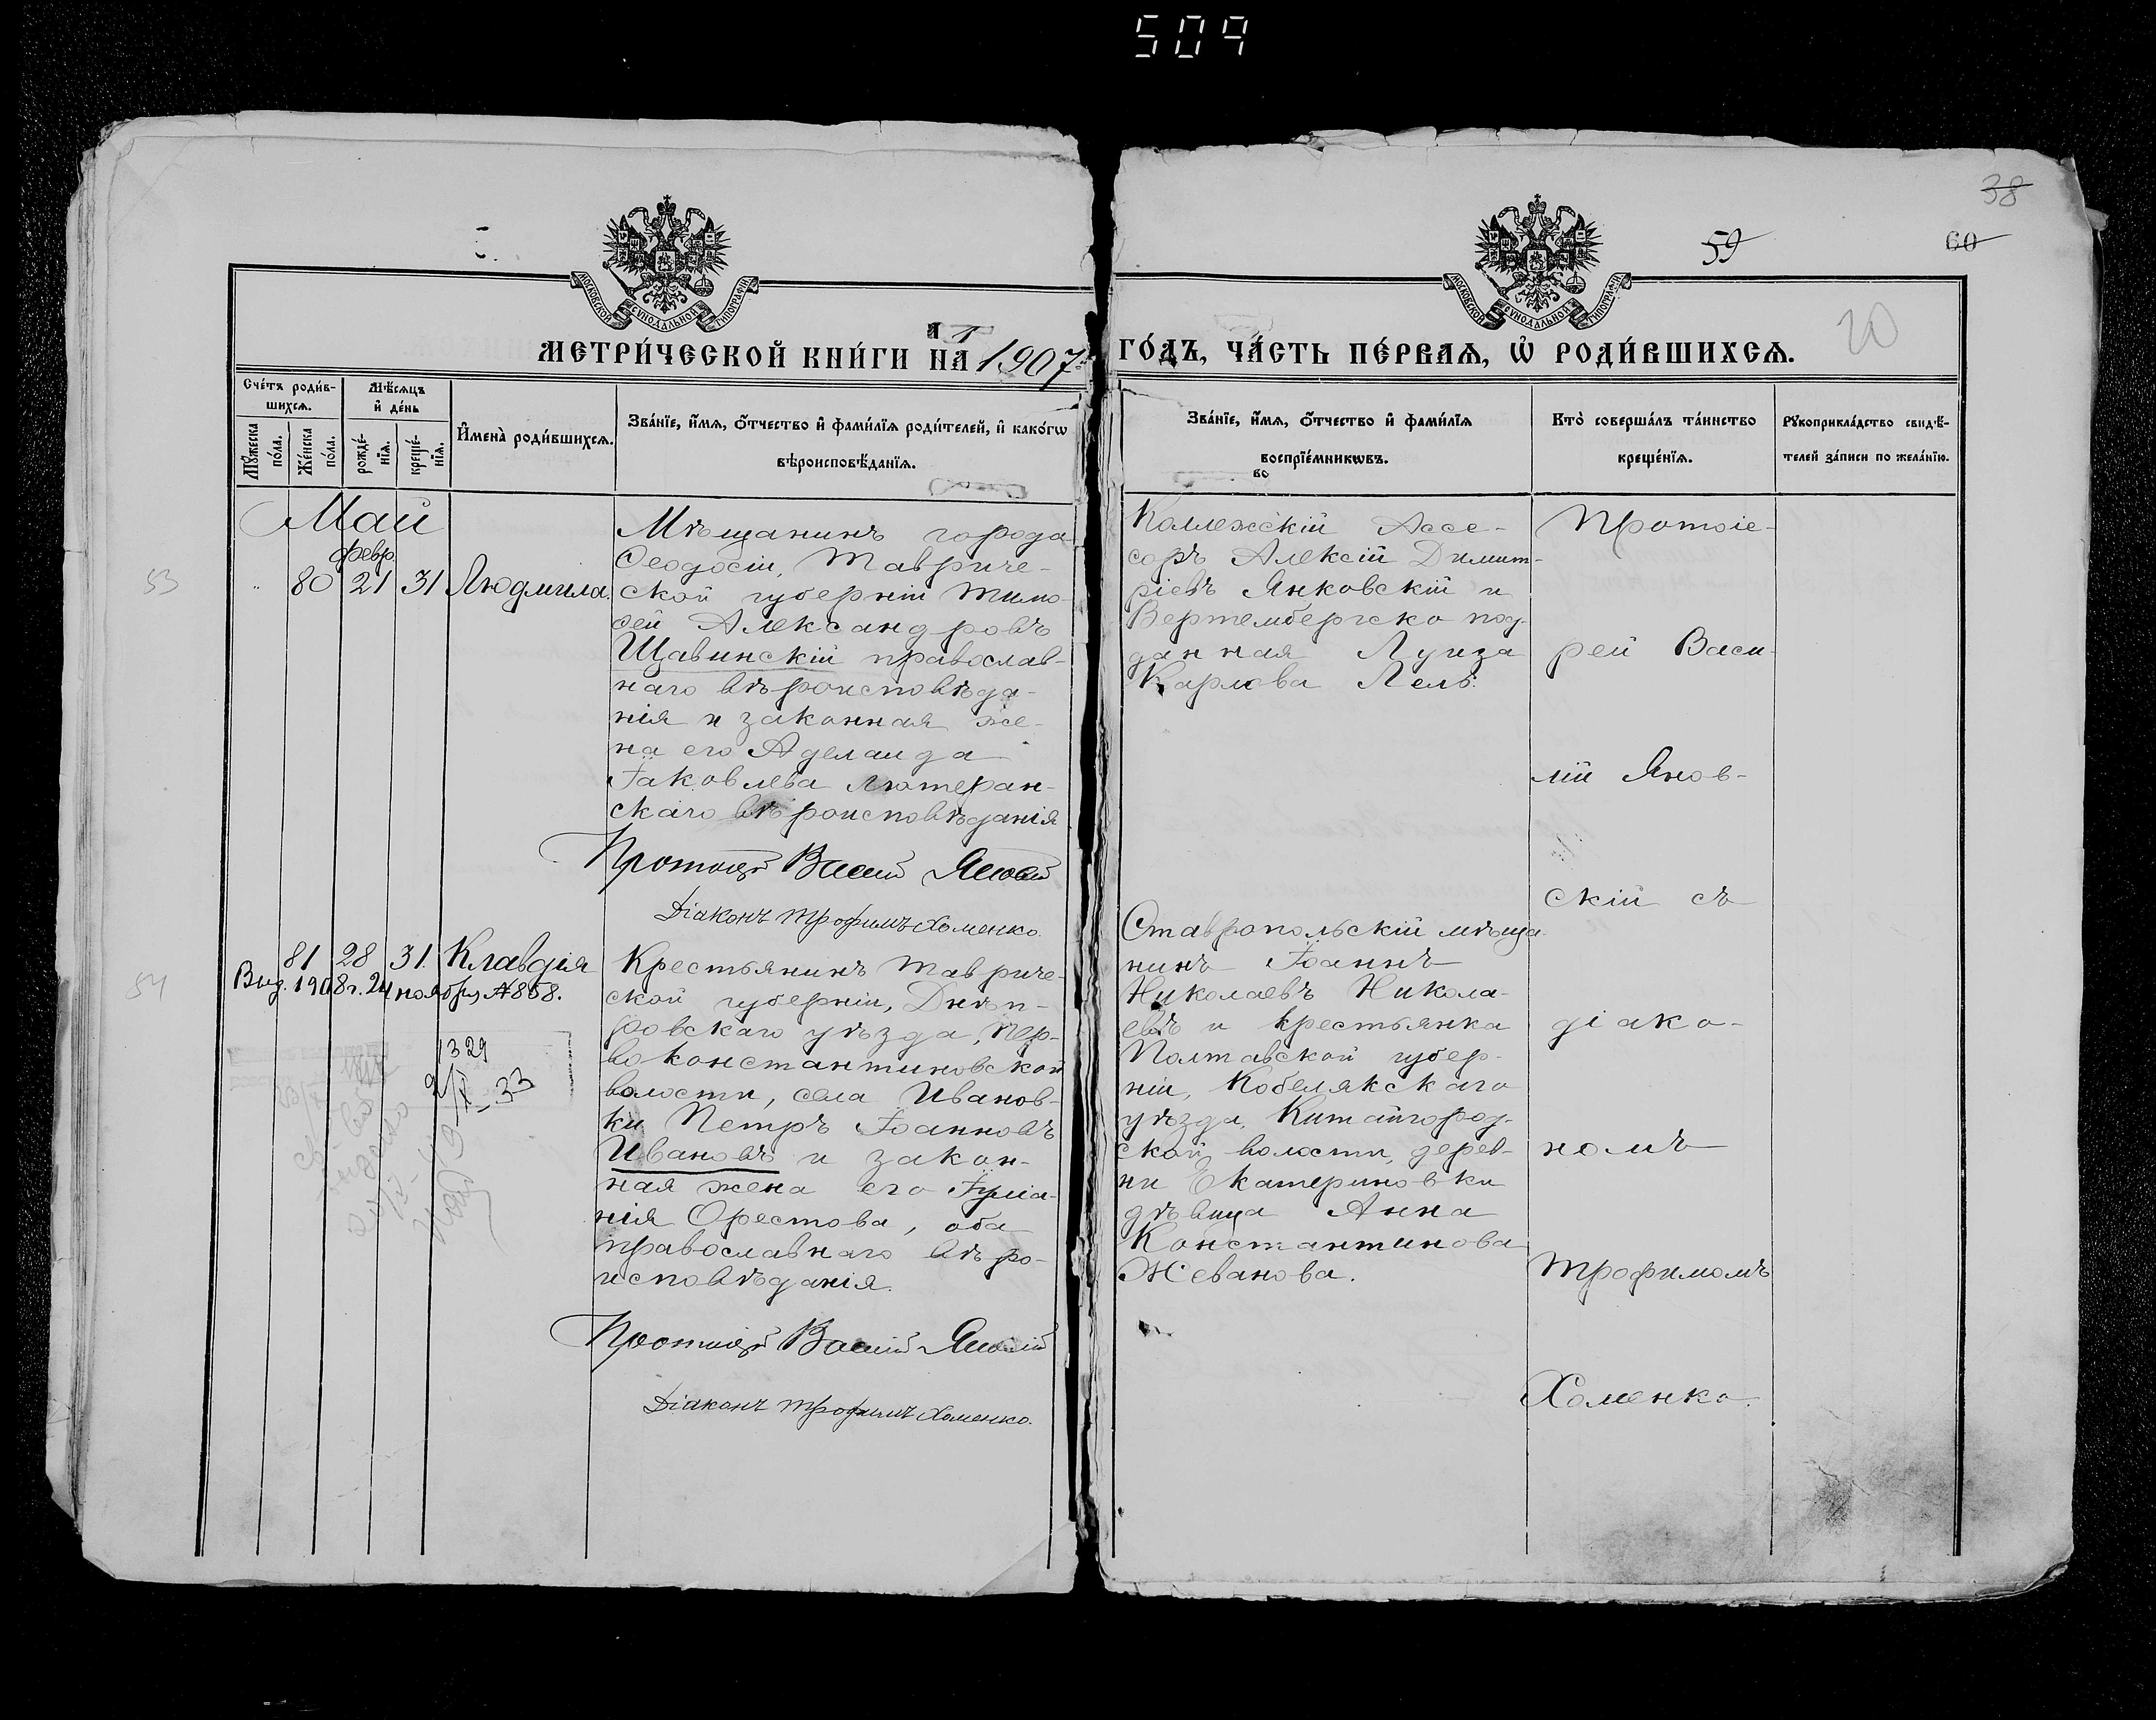 509
38
59
60
20
МОСКОВСКОЙ СѴНОДАЛЬНОЙ ТИПОГРАФІИ
МОСКОВСКОЙ СѴНОДАЛЬНОЙ ТИПОГРАФІИ
МЕТРИ́ЧЕСКОЙ КНИ́ГИ НА 1907
ГО́ДЪ, ЧА́СТЬ ПЕ́РВАЯ, Ѡ҆ РОДИ́ВШИХСЯ.
Сче́тъ роди́в-
шихся.
Мꙋ́жеска
по́ла.
Же́нска
по́ла.
Мѣ́сяцъ
и҆ де́нь
рожде́-
нїѧ.
креще́-
нїѧ.
И҆мена̀ роди́вшихсѧ.
Зва́нїе, и҆́мѧ, ѻ҆́тчество и҆ фами́лїѧ роди́телей, и҆ како́гѡ
вѣроисповѣ́данїѧ.
Зва́нїе, и҆́мѧ, ѻ҆́тчество и҆ фами́лїѧ
воспрїе́мникѡвъ.
Кто̀ соверша́лъ та́инство
креще́нїѧ.
Рꙋкоприкла́дство свидѣ́-
телей за́писи по жела́нїю.
Май
февр.
53
80 21 31 Людмила
Мѣщанинъ города
Ѳеодосіи, Тавриче-
ской губерніи Тимо-
ѳей Александровъ
Щавинскій православ-
наго вѣроисповѣда-
нія и законная же-
на его Аделаида
Іаковлева лютеран-
скаго вѣроисповѣданія
Протоіерей Василій Яновскій
Діаконъ Трофимъ Хоменко.
Коллежскій Ассе-
соръ Алексій Димит-
ріевъ Янковскій и
Вертембергско под-
данная Луиза
Карлова Лель.
Протоіе-
рей Васи-
лій Янов-
скій съ
діако-
номъ
Трофимомъ
Хоменко.
54
81 28 31. Клавдія
Выд. 1908 г. 24 ноября № 858.
1329
33
Крестьянинъ Тавриче-
ской губерніи, Днѣп-
ровскаго уѣзда, Пер-
воконстантиновской
волости, села Иванов-
ки Петръ Іоанновъ
Ивановъ и закон-
ная жена его Іуліа-
нія Орестова, оба
православнаго вѣро-
исповѣданія.
Протоіерей Василій Яновскій
Діаконъ Трофимъ Хоменко.
Ставропольскій мѣща-
нинъ Іоаннъ
Николаевъ Никола-
евъ и крестьянка
Полтавской губер-
ніи, Кобелякскаго
уѣзда, Китайгород-
ской волости, дерев-
ни Екатериновки
дѣвица Анна
Константинова
Жеванова.